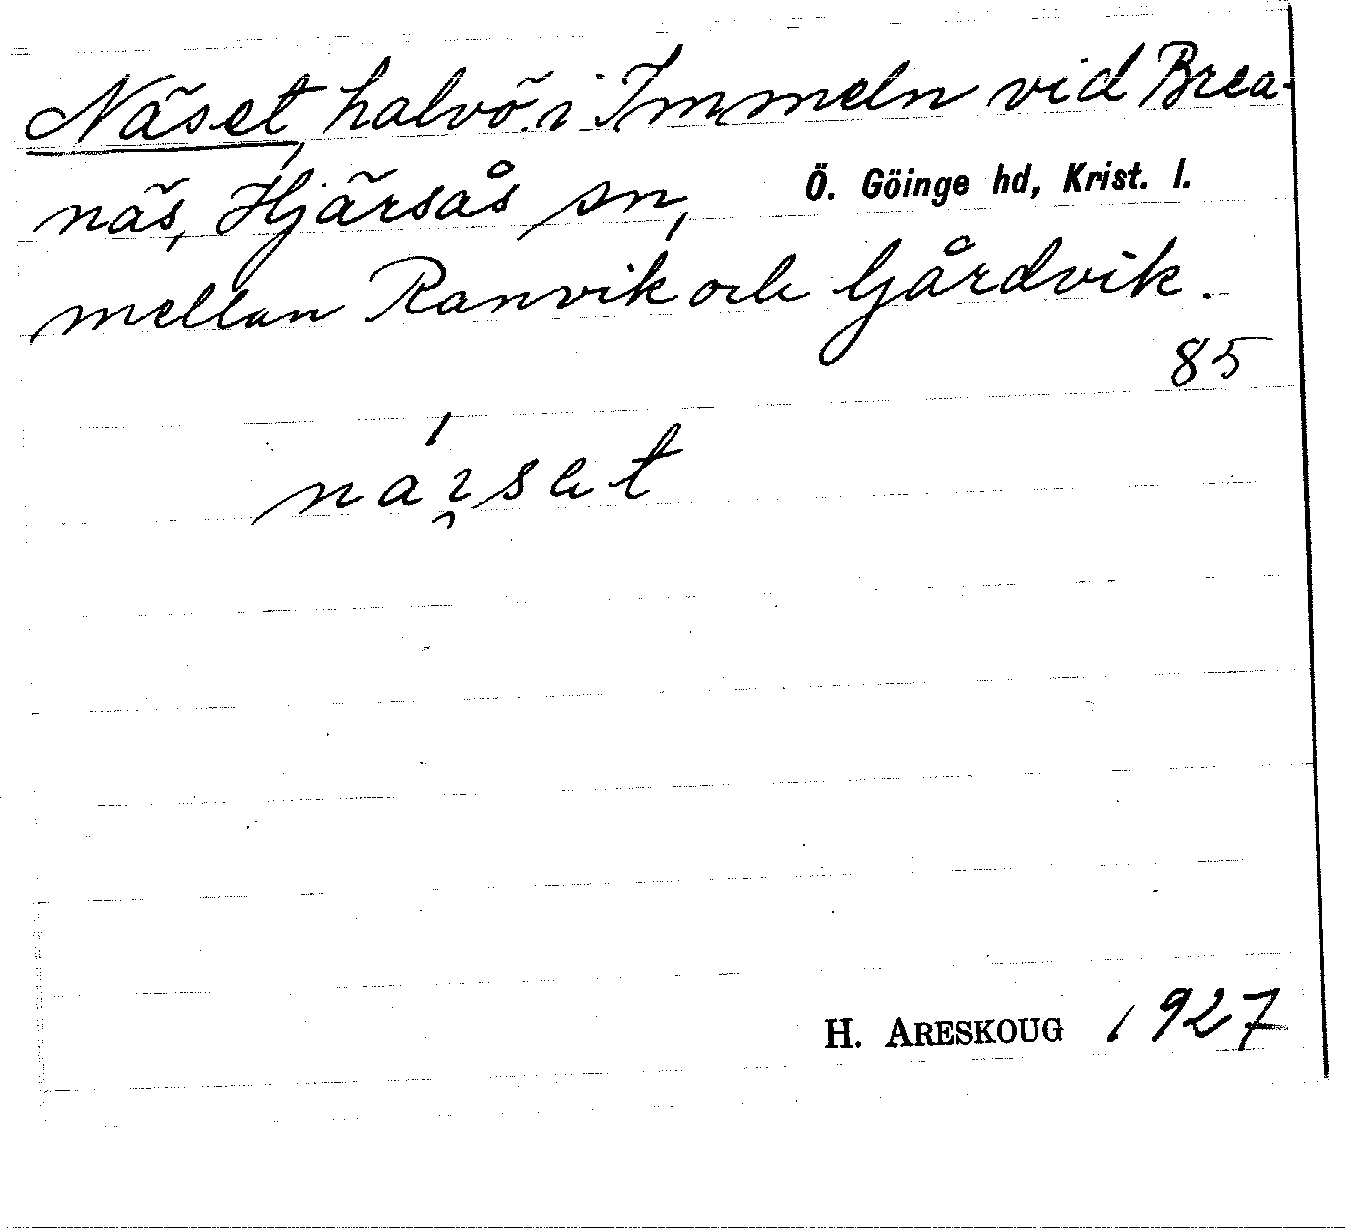 Näset, halvö i Immeln vid Brea-
näs, Hjärsås sn, Ö. Göinge hd, Krist. l.
mellan Ranvik och Gårdvik.
85
H. ARESKOUG 1927